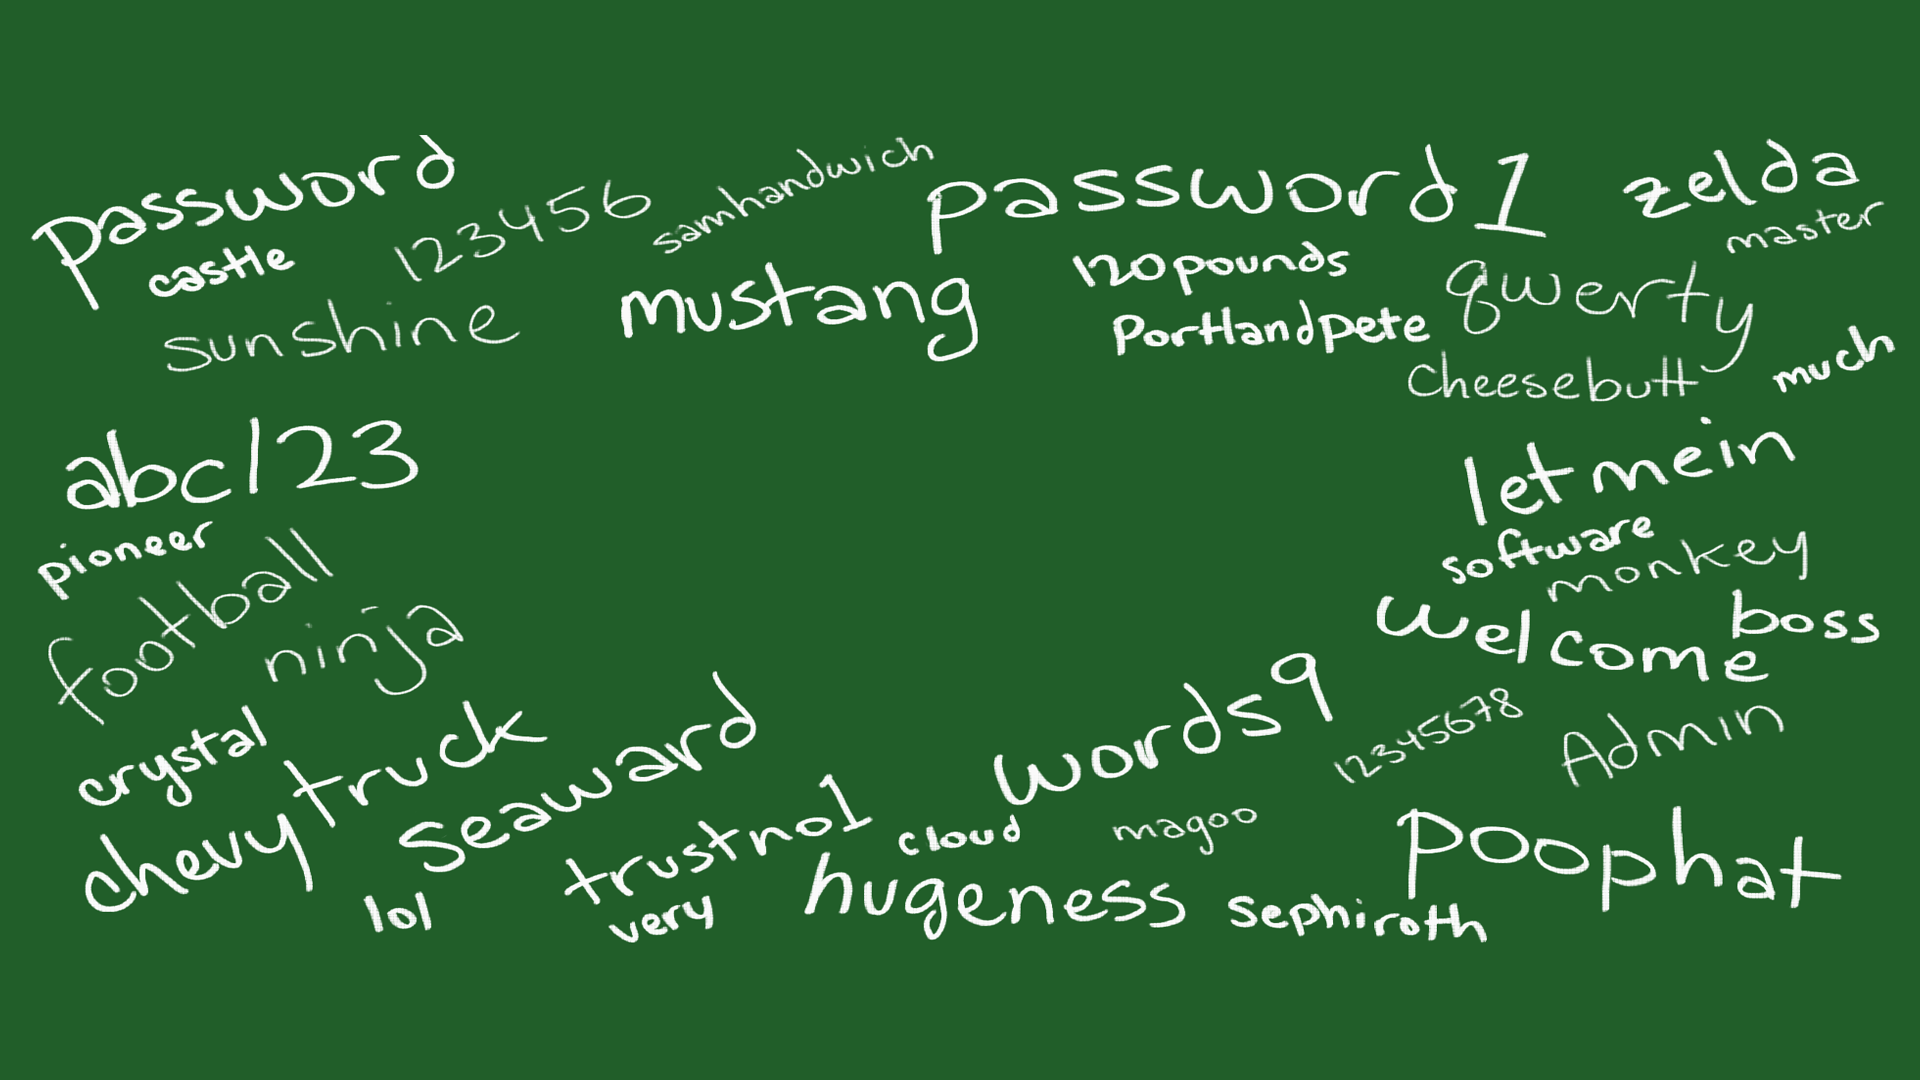 password
castle
123456
samhandwich
password1
zelda
master
sunshine
mustang
120pounds
PortlandPete
qwerty
Cheesebutt
much
abc123
letmein
pioneer
software
monkey
football
ninja
welcome
boss
crystal
chevytruck
seaward
words9
12345678
Admin
trustno1
cloud
magoo
poophat
lol
very
hugeness
sephiroth